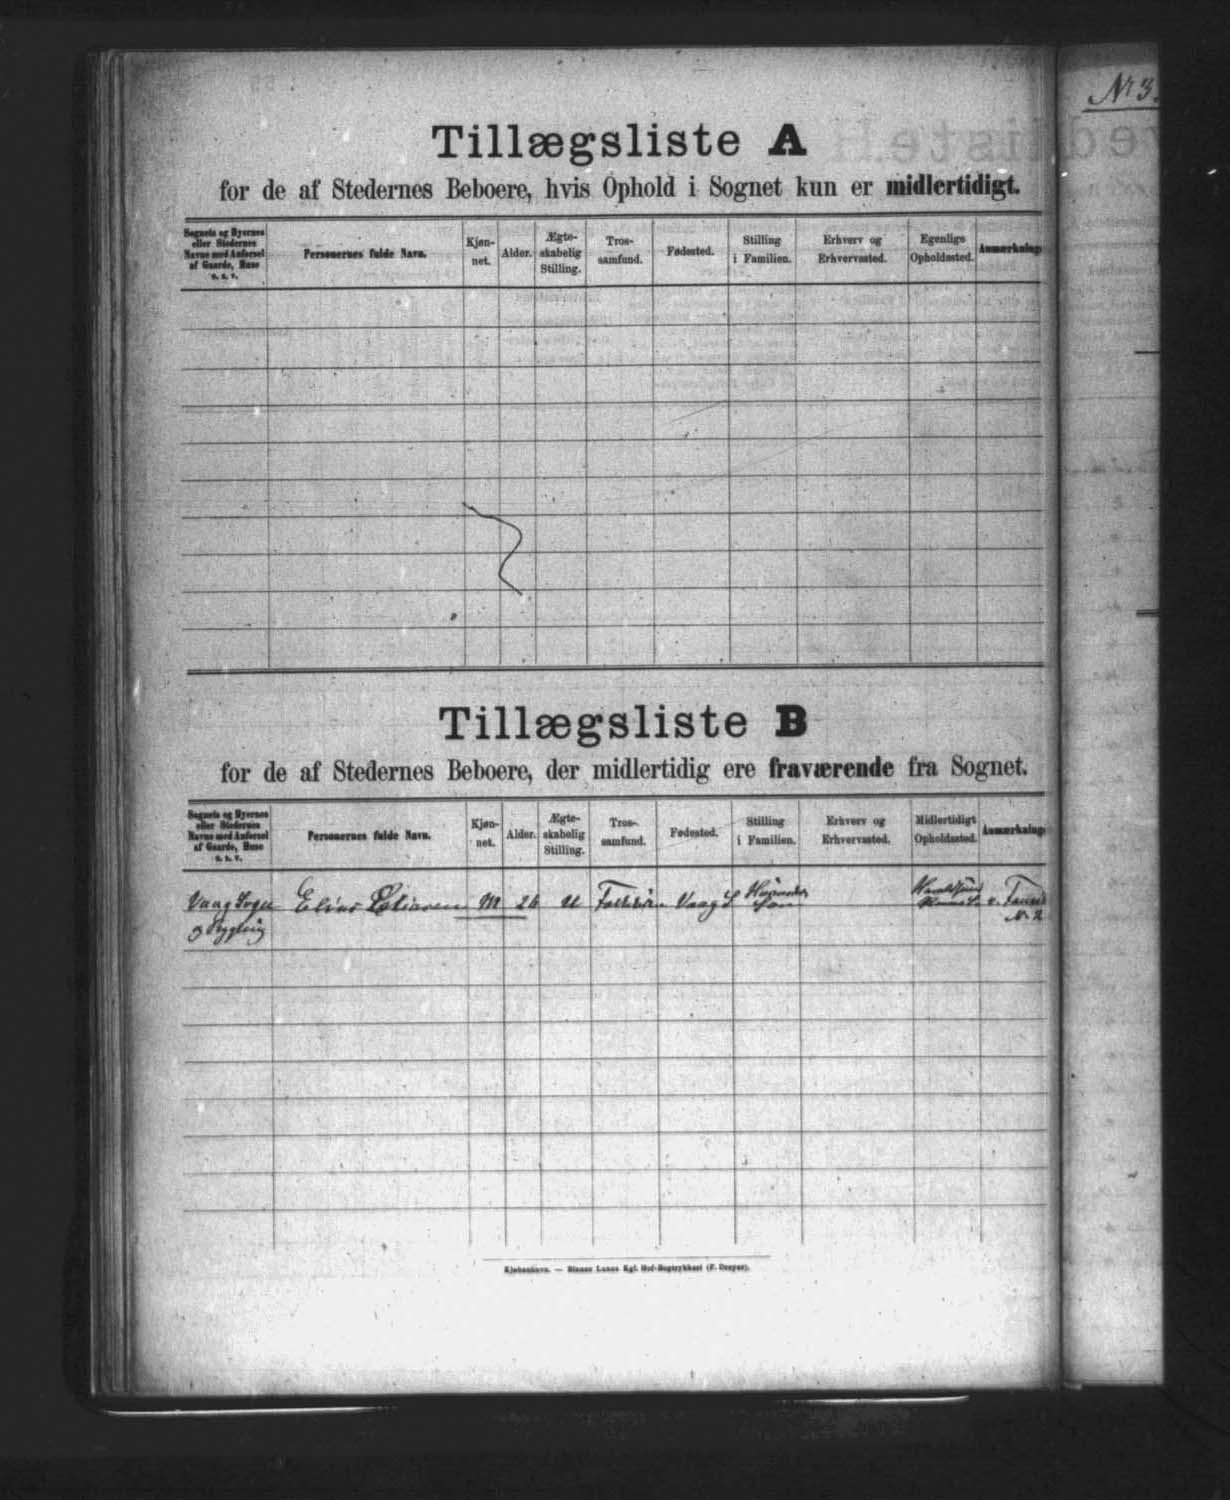 Nr 3.
Tillægsliste A
for de af Stedernes Beboere, hvis Ophold i Sognet kun er midlertidigt.
Sognets og Byernes eller Stedernes Navne med Anførsel af Gaarde, Huse o. s. v.
Personernes fulde Navn.
Kjøn-
net.
Alder.
Ægte-
skabelig
Stilling.
Tros-
samfund.
Fødested.
Stilling
i Familien.
Erhverv og
Erhvervssted.
Egenlige
Opholdssted.
Anmærkning.
Tillægsliste B
for de af Stedernes Beboere, der midlertidig ere fraværende fra Sognet.
Sognets og Byernes
eller Stedernes
Navne med Anførsel
af Gaarde, Huse
o. s. v.
Personernes fulde Navn.
Kjøn-
net.
Alder.
Ægte-
skabelig
Stilling.
Tros-
samfund.
Fødested.
Stilling
i Familien.
Erhverv og
Erhvervssted.
Midlertidigt
Opholdssted.
Anmærkning.
Vaag Sogn
Elias
M
26
U
Vaag S
Søn
Nr 2
Kjøbenhavn. — Bianco Lunos Kgl. Hof-Bogtrykkeri (F. Dreyer).